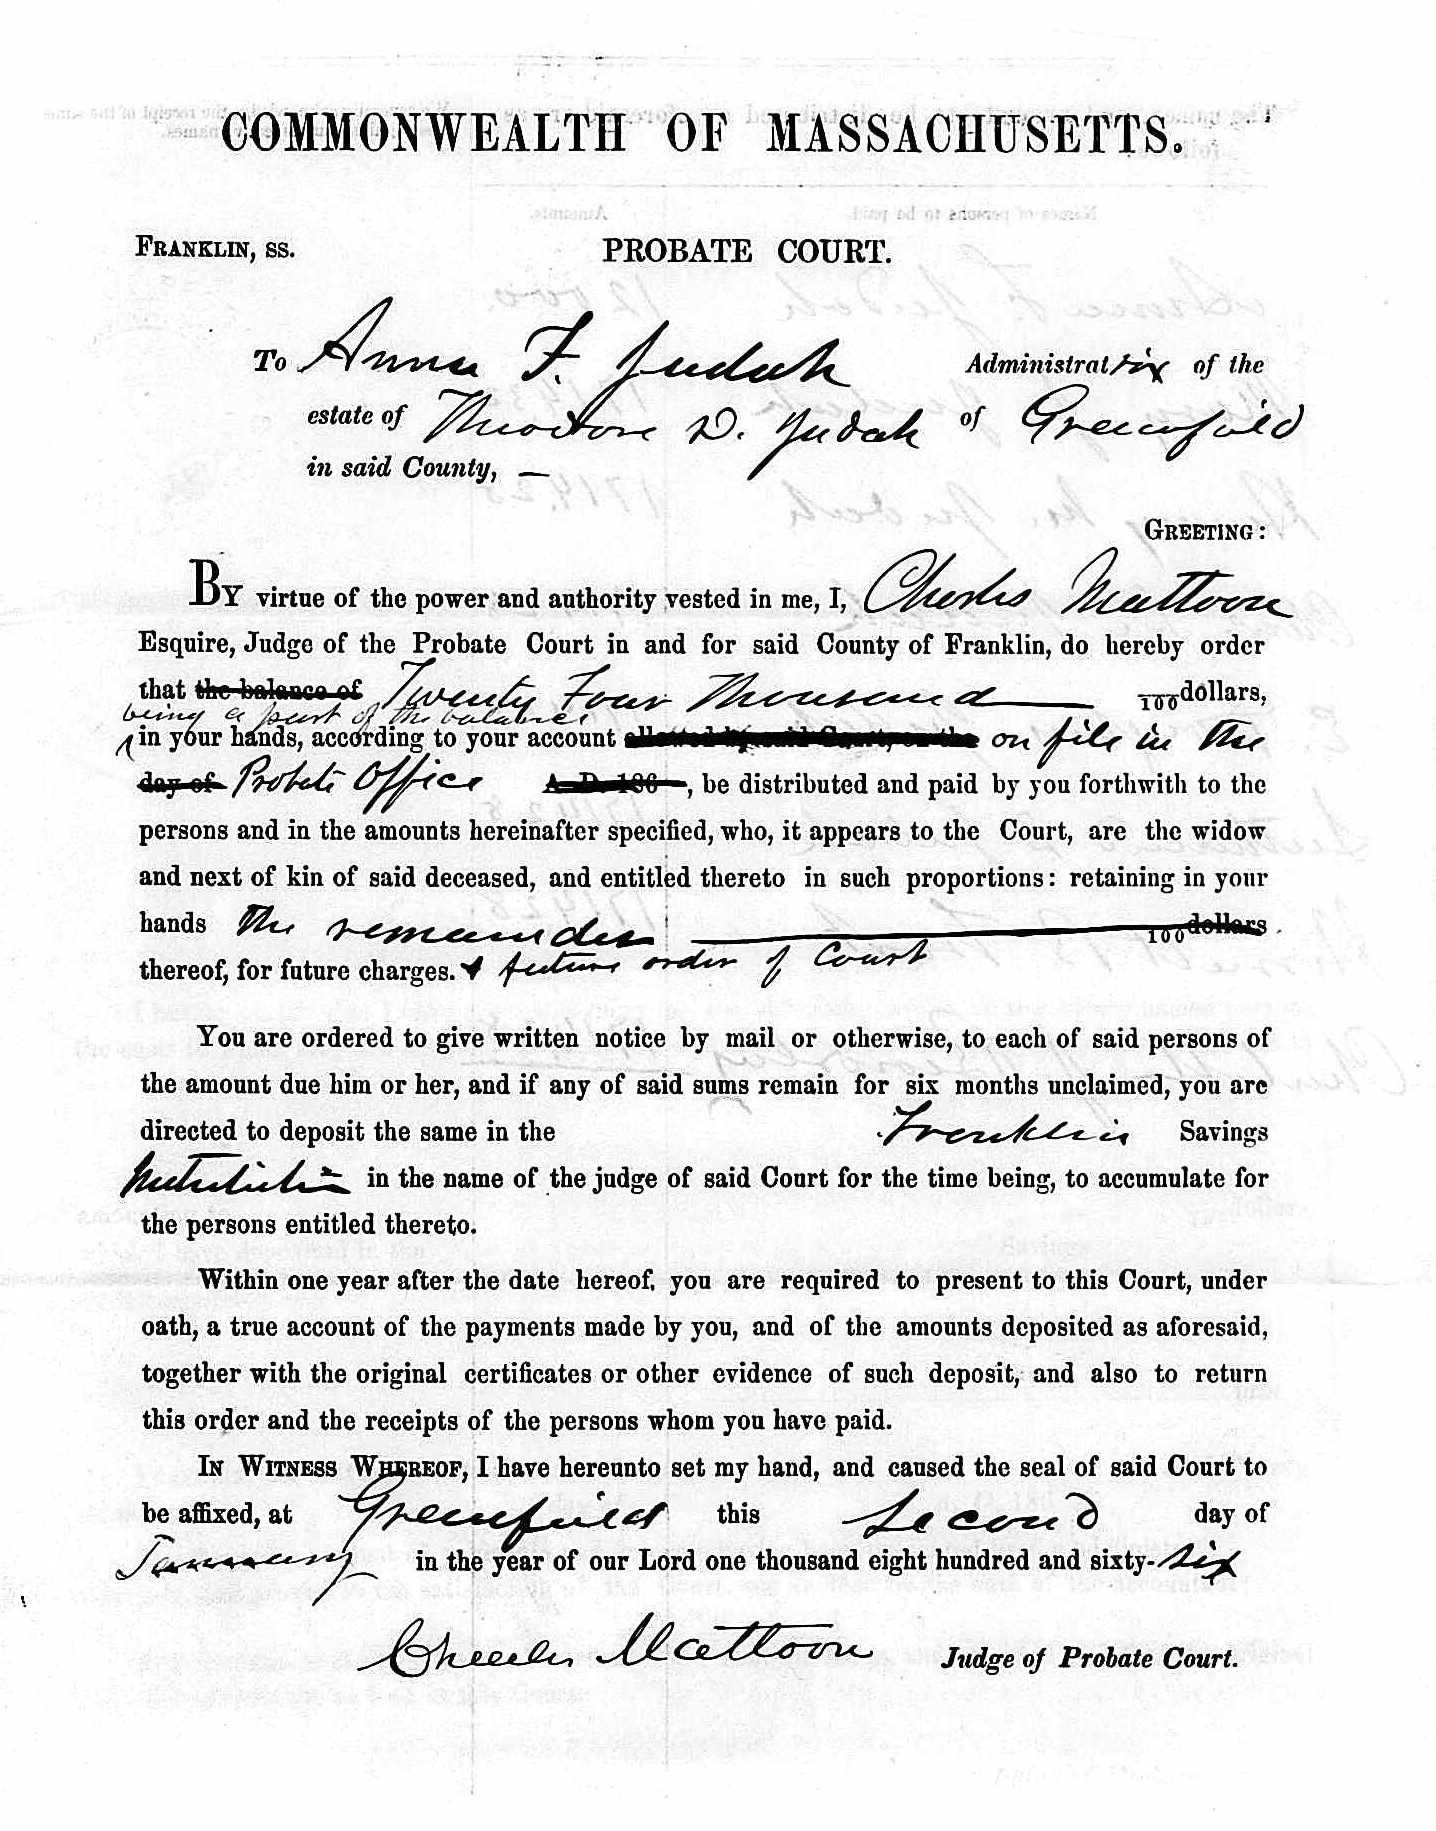 COMMONWEALTH OF MASSACHUSETTS.
FRANKLIN, SS. PROBATE COURT.
To Anna F. Judah Administratrix of the
estate of Theodore D. Judah of Greenfield
in said County, —
GREETING:
BY virtue of the power and authority vested in me, I, Charles Mattoon
Esquire, Judge of the Probate Court in and for said County of Franklin, do hereby order
that the balance of Twenty Four Thousand 100 dollars,
being a part of the balance
in your hands, according to your account allowed by said Court, on the on file in the
day of Probate Office A. D. 186 , be distributed and paid by you forthwith to the
persons and in the amounts hereinafter specified, who, it appears to the Court, are the widow
and next of kin of said deceased, and entitled thereto in such proportions: retaining in your
hands the remainder 100 dollars
thereof, for future charges. & future order of Court
You are ordered to give written notice by mail or otherwise, to each of said persons of
the amount due him or her, and if any of said sums remain for six months unclaimed, you are
directed to deposit the same in the Franklin Savings
Institution in the name of the judge of said Court for the time being, to accumulate for
the persons entitled thereto.
Within one year after the date hereof, you are required to present to this Court, under
oath, a true account of the payments made by you, and of the amounts deposited as aforesaid,
together with the original certificates or other evidence of such deposit, and also to return
this order and the receipts of the persons whom you have paid.
IN WITNESS WHEREOF, I have hereunto set my hand, and caused the seal of said Court to
be affixed, at Greenfield this Second day of
January in the year of our Lord one thousand eight hundred and sixty-six
Charles Mattoon Judge of Probate Court.